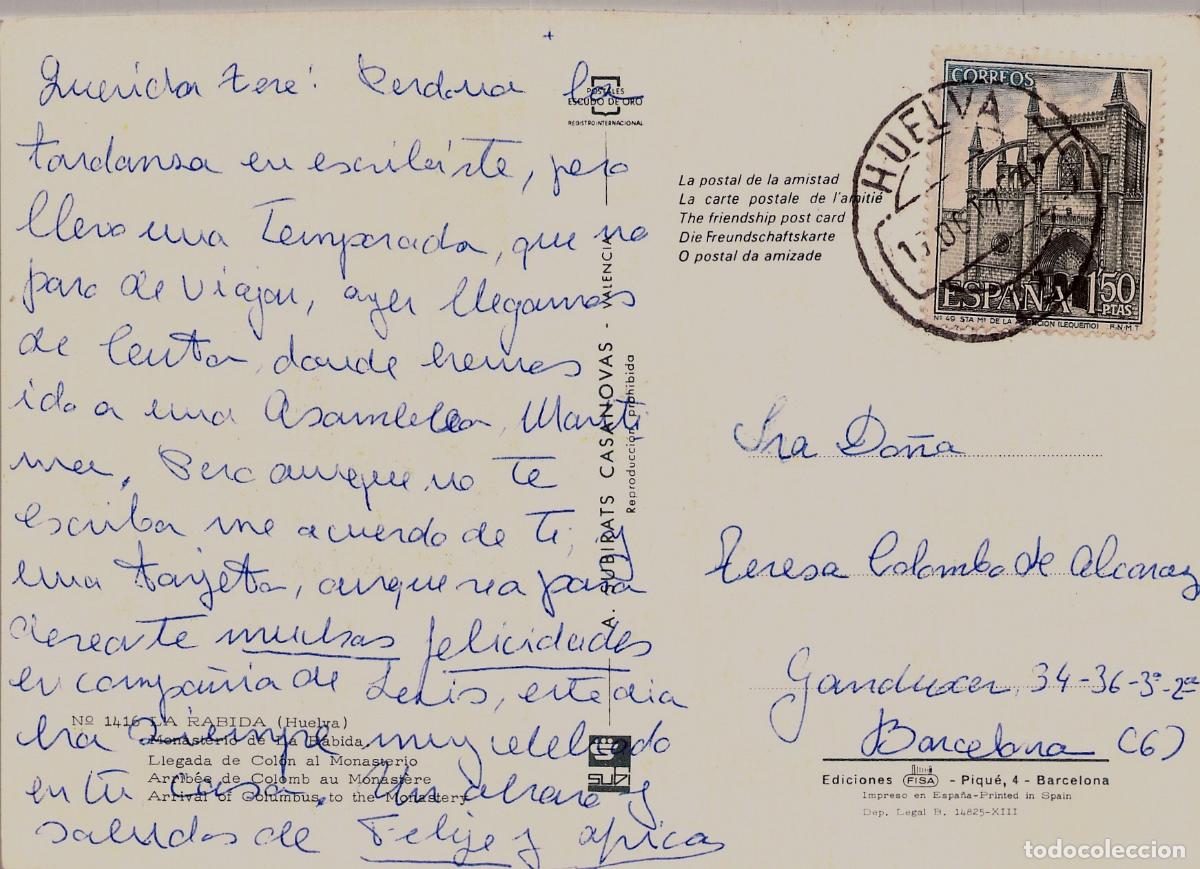 Querida Tere: Perdona la
tardansa en escribirte, pero
llevo una Temporada, que no
paro de viajar, ayer llegamos
de Ceuta, donde hemos
ido a una Asamblea, Marití
ma, Pero aunque no te
escriba me acuerdo de Ti, y
una tarjeta, aunque sea para
desearte muchas felicidades
en compañia de Luis, este dia
era siempre muy celebrado
en tu casa. Un abrazo y
saludos de Felipe y
POSTALES
ESCUDO DE ORO
REGISTRO INTERNACIONAL
La postal de la amistad
La carte postale de l'amitié
The friendship post card
Die Freundschaftskarte
O postal da amizade
A. SUBIRATS CASANOVAS - VALENCIA
Reproducción prohibida
CORREOS
ESPAÑA 1,50 PTAS
Nº 49 STA Mª DE LA ASUNCION (LEQUEITIO) F.N.M.T
HUELVA
Sra Doña
Teresa Colomba de Alcaraz
Ganduxer, 34-36-3º-2ª
Barcelona (6)
Nº 1416 LA RABIDA (Huelva)
Monasterio de La Rábida
Llegada de Colón al Monasterio
Arribée de Colomb au Monastère
Arrival of Columbus to the Monastery
SUBI
Ediciones FISA - Piqué, 4 - Barcelona
Impreso en España-Printed in Spain
Dep. Legal B. 14825-XIII
todocoleccion